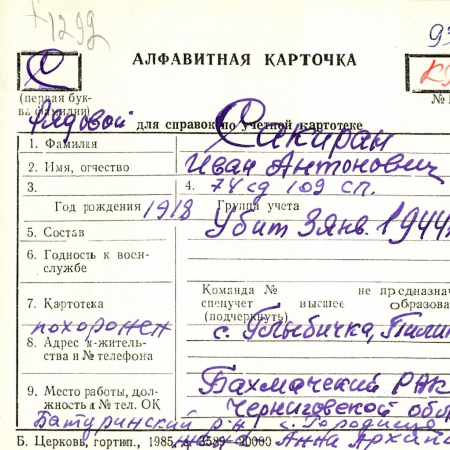 1292
АЛФАВИТНАЯ КАРТОЧКА
С
(первая бук-
ва фамилии)
№
Рядовой для справок по учетной картотеке
1. Фамилия Сакиран
2. Имя, отчество Иван Антонович
3. 4. 74 сд 109 сп.
Год рождения 1918 Группа учета
5. Состав Убит 3 янв. 1944
6. Годность к воен-
службе
Команда № не предназнача
7. Картотека спецучет высшее образова
(подчеркнуть)
похоронен с. Улыбичка,
8. Адрес м-жительс-
ства и № телефона
9. Место работы, дол- Бахмачский РВК
жность и № тел. ОК Черниговской обл
Батуринский р-н с. Городище
Б. Церковь, гортип., 1985, з. 3589—20000 Анна Архип